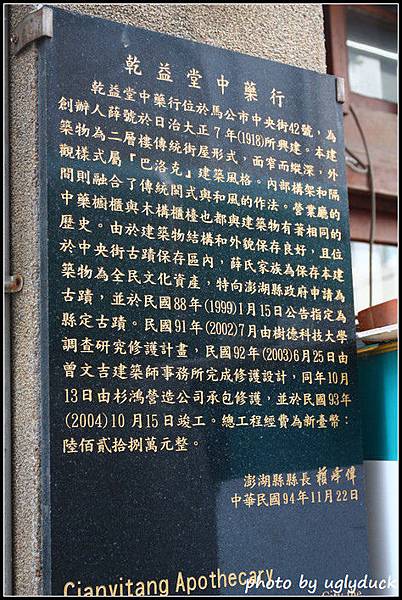 乾益堂中藥行
乾益堂中藥行位於馬公市中央街42號，為
創辦人薛號於日治大正７年(1918)所興建。本建
築物為二層樓傳統街屋形式，面窄而縱深，外
觀樣式屬『巴洛克』建築風格。內部構架和隔
間則融合了傳統閩式與和風的作法。營業廳的
中藥櫥櫃與木構櫃檯也都與建築物有著相同的
歷史。由於建築物結構和外貌保存良好，且位
於中央街古蹟保存區內，薛氏家族為保存本建
築物為全民文化資產，特向澎湖縣政府申請為
古蹟，並於民國88年(1999)1月15日公告指定為
縣定古蹟。民國91年(2002)7月由樹德科技大學
調查研究修護計畫，民國92年(2003)6月25日由
曾文吉建築師事務所完成修護設計，同年10月
13日由杉鴻營造公司承包修護，並於民國93年
(2004)10月15日竣工。總工程經費為新臺幣：
陸佰貳拾捌萬元整。
澎湖縣縣長 賴峰偉
中華民國94年11月22日
Cianyitang Apothecary
photo by uglyduck